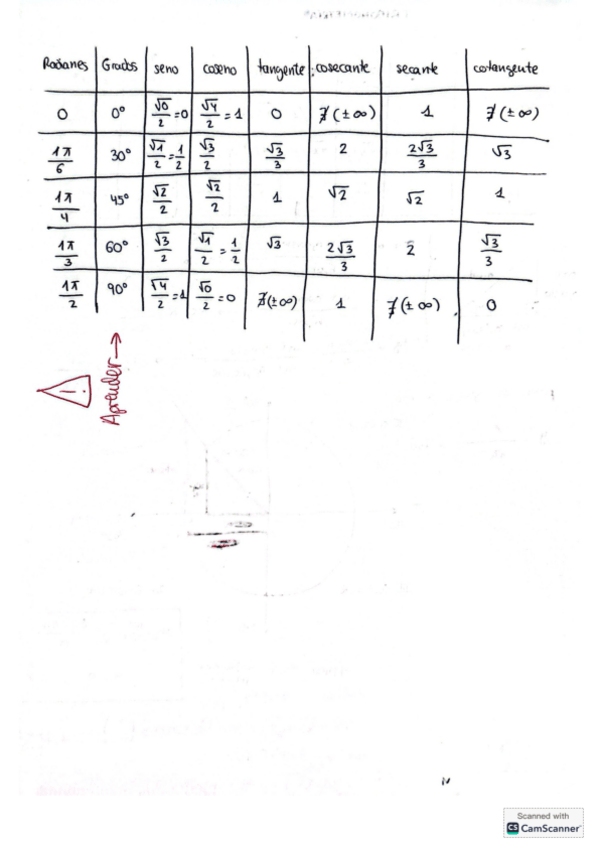 Radianes Grados seno coseno tangente cosecante secante cotangente
0 0° √0/2=0 √4/2=1 0 ∄(±∞) 1 ∄(±∞)
1π/6 30° √1/2=1/2 √3/2 √3/3 2 2√3/3 √3
1π/4 45° √2/2 √2/2 1 √2 √2 1
1π/3 60° √3/2 √1/2=1/2 √3 2√3/3 2 √3/3
1π/2 90° √4/2=1 √0/2=0 ∄(±∞) 1 ∄(±∞) 0
! Aprender→
Scanned with
CS CamScanner